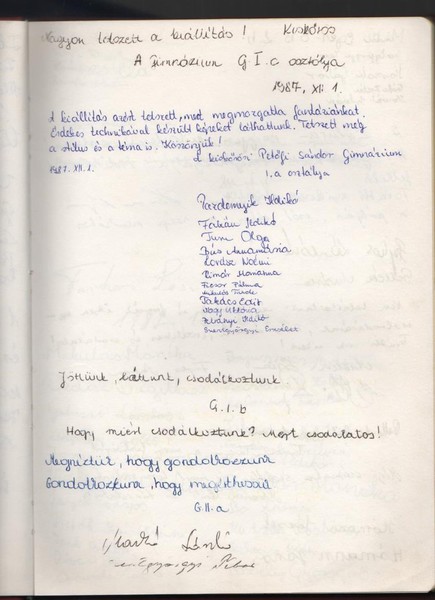 Nagyon tetszett a kiállítás! Kiskőrös
A Gimnázium G.I.c osztálya
1987. XII. 1.
A kiállítás azért tetszett, mert megmozgatta fantáziánkat.
Érdekes technikával készült képeket láthattunk. Tetszett még
a stílus és a téma is. Köszönjük!
A kiskőrösi Petőfi Sándor Gimnázium
1987. XII. 1.
I.a osztálya
Ildikó
Fábián Ildikó
Olga
Annamária
Kovász Noémi
Marianna
Pálma
Tünde
Takács Edit
Nagy Viktória
Ildikó
Szentgyörgyi Erzsébet
Jöttünk, láttunk, csodálkoztunk.
G.I.b
Hogy miért csodálkoztunk? Mert csodálatos!
Megnéztük, hogy gondolkozzunk
Gondolkozzunk, hogy megérthessük
G.II.a
László
Szentgyörgyi